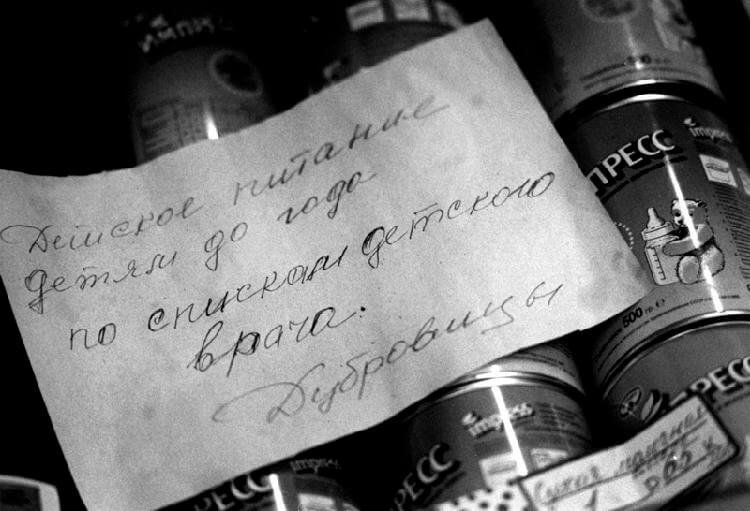 Детское питание
детям до года
по спискам детского
врача.
Дубровицы
ИМПРЕСС
impress
500 гр. ℮
impress
impress